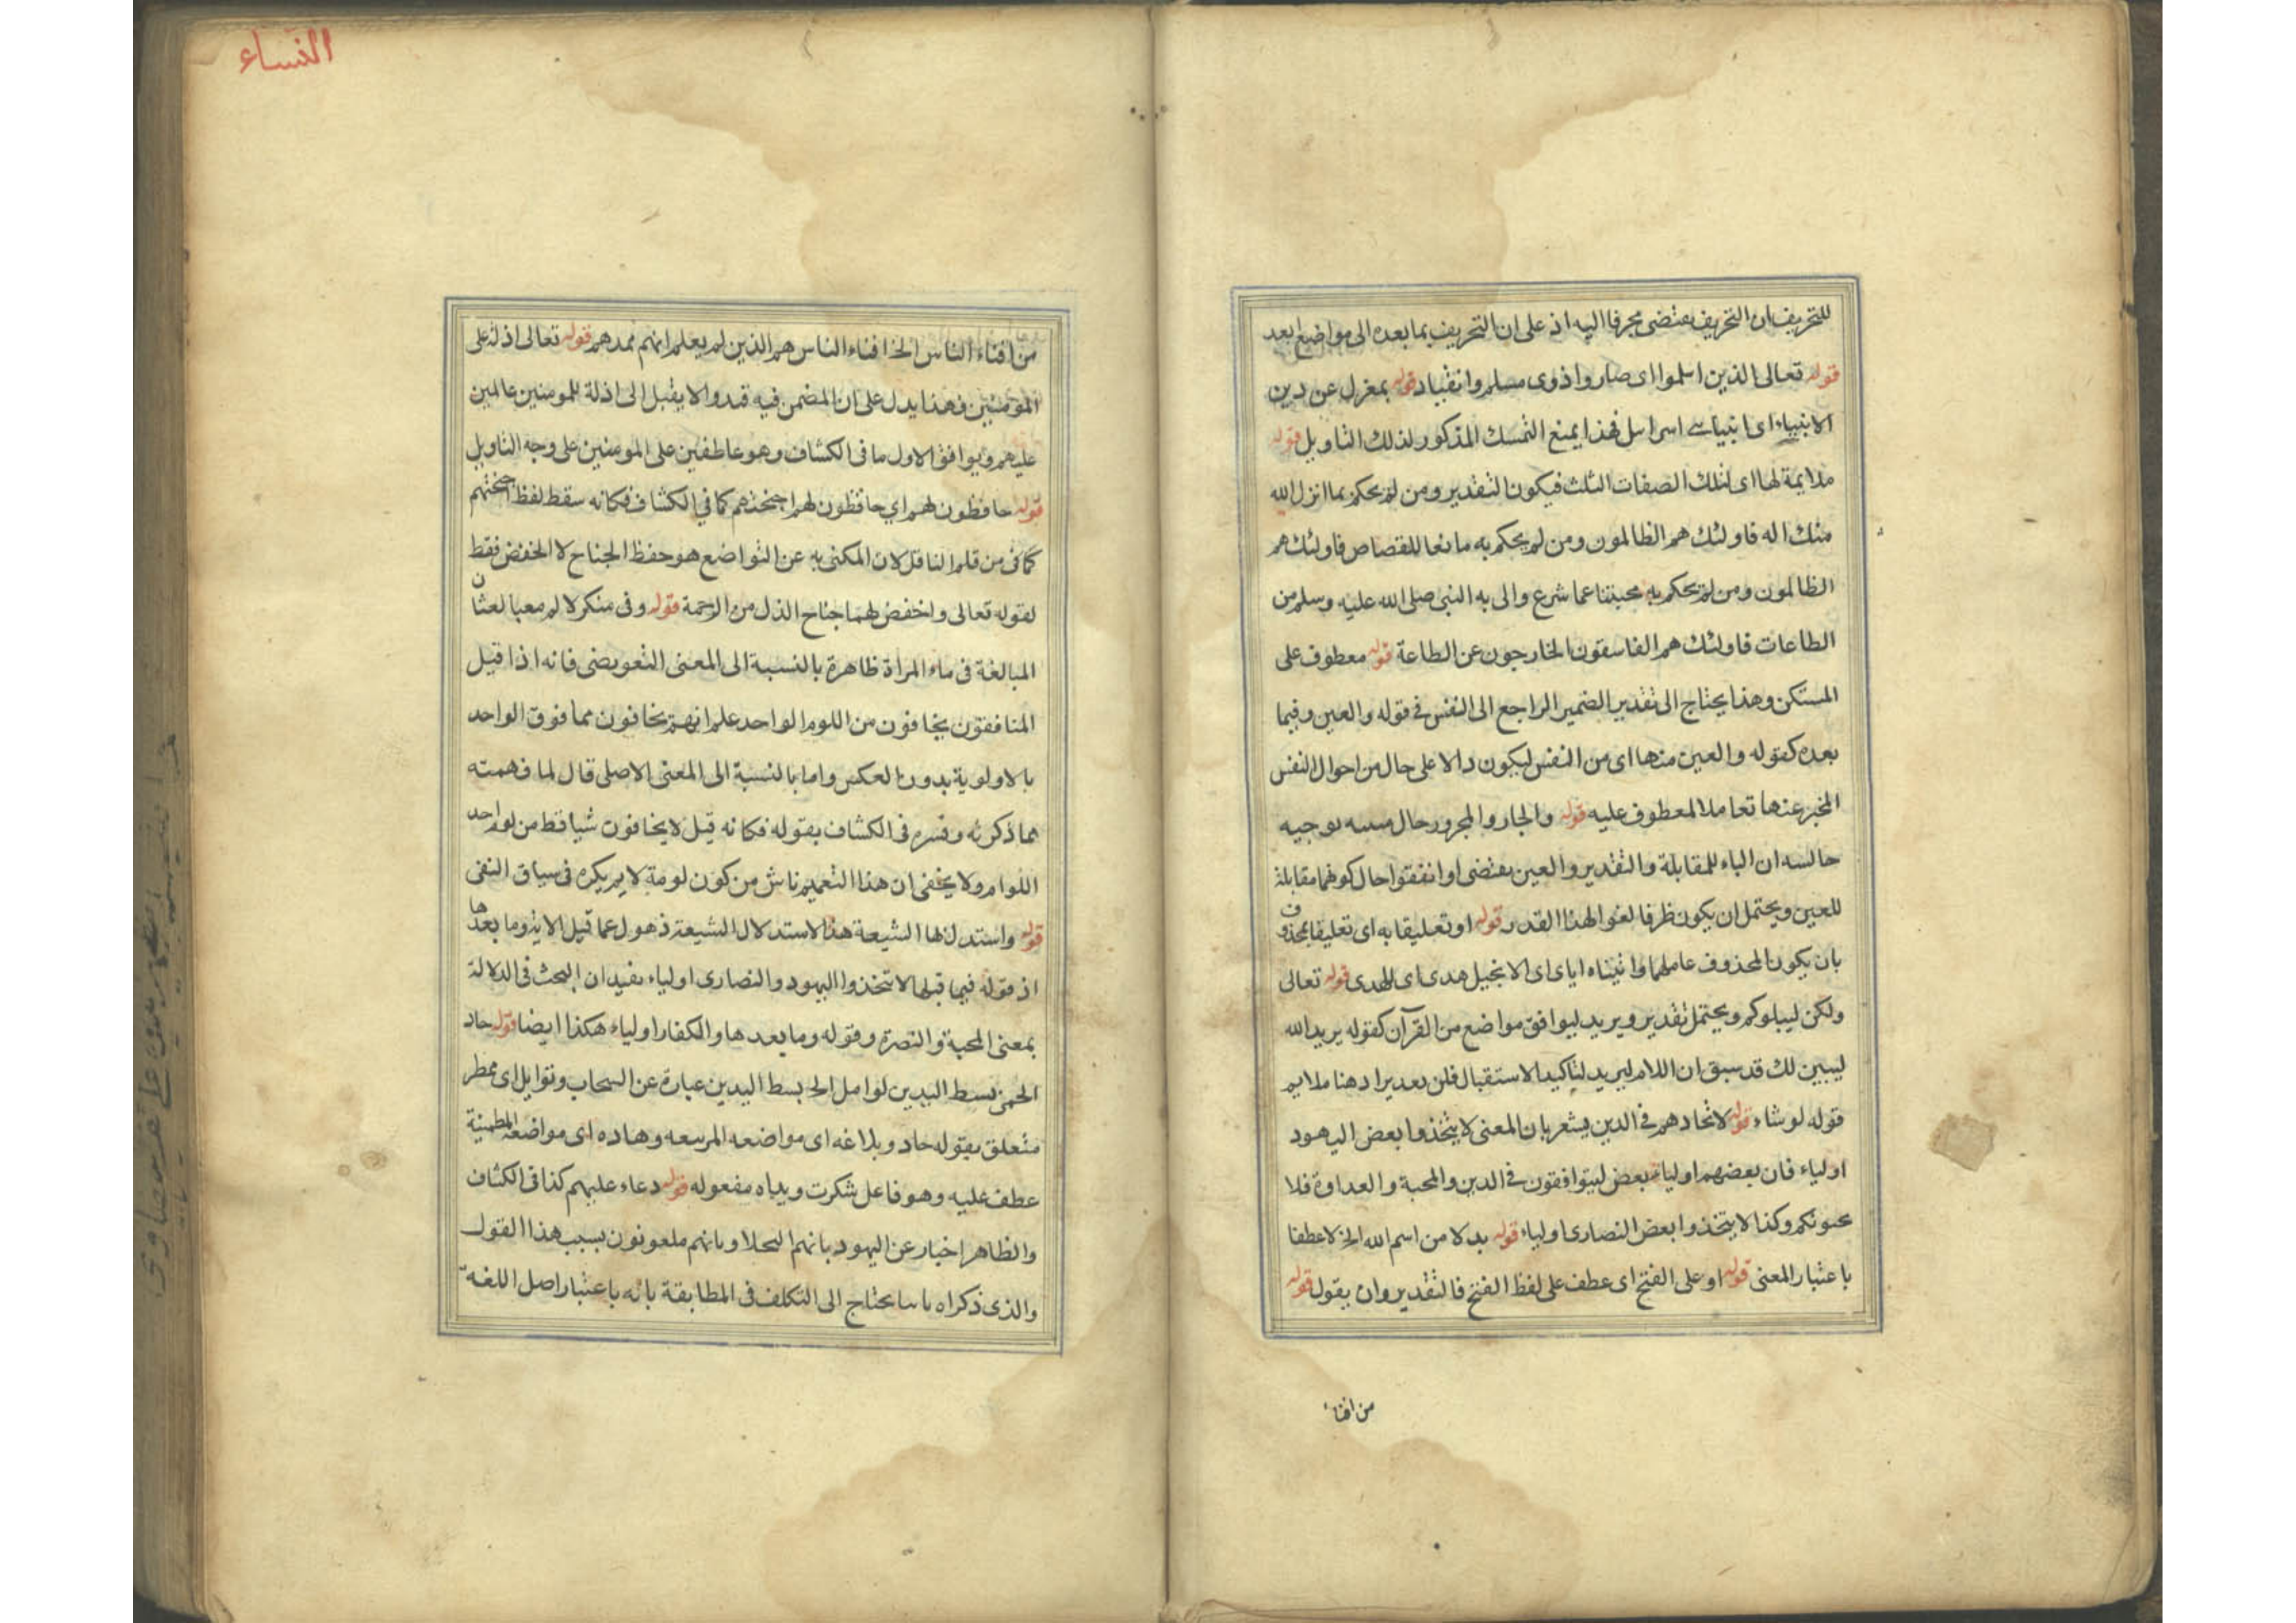 للتحريف ان التحريف يقتضى محرفا اليه اذ على ان التحريف بما بعده الى مواضع ابعد
قوله تعالى الذين اسلموا اى صاروا ذوى مسلم وانقياد قوله بمعزل عن دين
الانبياء اى انبيا اسرائيل فهذا يمنع التمسك المذكور لذلك التاويل قوله
ملايمة لها اى لتلك الصفات الثلث فيكون التقدير ومن لم يحكم بما انزل الله
اله فاولئك هم الظالمون ومن لم يحكم به مانعا للقصاص فاولئك هم
الظالمون ومن لم يحكم به عما شرع والى به النبى صلى الله عليه وسلم من
الطاعات فاولئك هم الفاسقون الخارجون عن الطاعة قوله معطوف على
المستكن وهذا يحتاج الى تقدير الضمير الراجع الى النفس فى قوله والعين وفيما
بعده كقوله والعين منها اى من النفس ليكون دالا على حال من احوال النفس
المخبر عنها تعاملا لمعطوف عليه قوله والجار والمجرور حال
ان الباء للمقابلة والتقدير والعين يقتضى او انفقوا حال كونها مقابلة
للعين ويحتمل ان يكون ظرفا لغوا لهذا القدر قوله او تعليقا به اى تعليقا بمحذوف
بان يكون المحذوف عاملهما واتيناه اياى اى الانجيل هدى اى للهدى قوله تعالى
ولكن ليبلوكم ويحتمل تقدير ويريد ليوافق مواضع من القرآن كقوله يريد الله
ليبين لك قد سبق ان اللام ليريد لتاكيد الاستقبال فلن يعد يراد هنا ملايم
قوله لو شاء قوله لاتحادهم فى الدين يشعر بان المعنى لا يتخذوا بعض اليهود
اولياء فان بعضهم اولياء بعض ليتوافقون فى الدين والمحبة والعداوة فلا
وكذا لا يتخذوا بعض النصارى اولياء قوله بدلا من اسم الله الخ لا عطفا
باعتبار المعنى قوله او على الفتح اى عطف على لفظ الفتح فالتقدير وان يقول قوله
من افنا
النساء
من افناء الناس الخ افناء الناس هم الذين لم يعلم انهم ممدهم قوله تعالى اذلة على
المؤمنين فهذا يدل على ان المضمن فيه قيد والا يقبل الى اذلة للمومنين عالمين
عليهم ويوافق الاول ما فى الكشاف وهو عاطفين على المومنين على وجه التاويل
قوله حافظون لهم اي حافظون لهم اجنحتهم كما في الكشاف فكانه سقط لفظ اجنحتهم
كما فى من قلم الناقل لان المكنى به عن التواضع هو حفظ الجناح لا الخفض فقط
لقوله تعالى واخفض لهما جناح الذل من الرحمة قوله وفى منكر لا لم
المبالغة فى ماء المراة ظاهرة بالنسبة الى المعنى التعويضى فانه اذا قيل
المنافقون يخافون من اللوم الواحد علم انهم يخافون مما فوق الواحد
بالاولوية بدون العكس واما بالنسبة الى المعنى الاصلى قال لما فهمته
مما ذكرته وفسره فى الكشاف بقوله فكانه قيل لا يخافون شيا قط من لوم احد
اللوام ولا يخفى ان هذا التعميم ناش من كون لومة لايم نكره فى سياق النفى
قوله واستدل بها الشيعة هذا الاستدلال الشيعة ذهول عما قبل الاية وما بعدها
اذ قوله فيما قبلها لا تتخذوا اليهود والنصارى اولياء يفيد ان البحث فى الدلالة
بمعنى المحبة والنصرة وقوله وما بعدها والكفار اولياء هكذا ايضا قوله جاد
الحمى بسط اليدين لوامل الخ بسط اليدين عبارة عن السحاب وتوابل اى ممطر
متعلق بقوله جاد وبلاغه اى مواضعه المرتفعه وهاده اى مواضعه المطمنية
عطف عليه وهو فاعل شكرت ويداه مفعوله قوله دعاء عليهم كذا فى الكشاف
والظاهر اخبار عن اليهود بانهم البخلا وبانهم ملعونون بسبب هذا القول
والذى ذكراه يحتاج الى التكلف فى المطابقة بانه باعتبار اصل اللغة